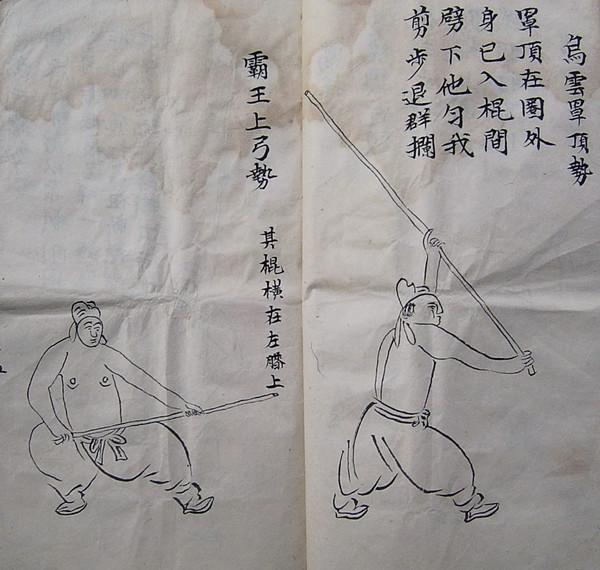 烏雲罩頂勢
罩頂在圈外
身已入棍間
劈下他勻我
剪步退群攔
霸王上弓勢
其棍橫在左膝上